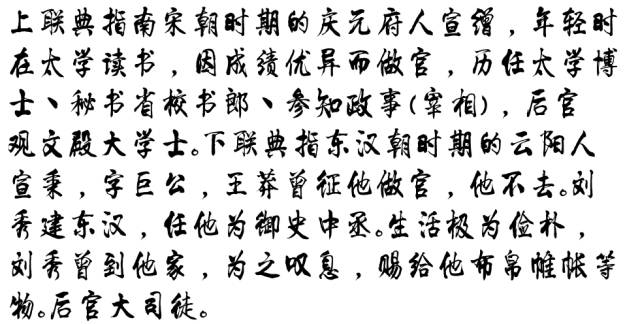 上联典指南宋朝时期的庆元府人宣缯，年轻时
在太学读书，因成绩优异而做官，历任太学博
士、秘书省校书郎、参知政事(宰相)，后官
观文殿大学士。下联典指东汉朝时期的云阳人
宣秉，字巨公，王莽曾征他做官，他不去。刘
秀建东汉，任他为御史中丞。生活极为俭朴，
刘秀曾到他家，为之叹息，赐给他布帛帷帐等
物。后官大司徒。